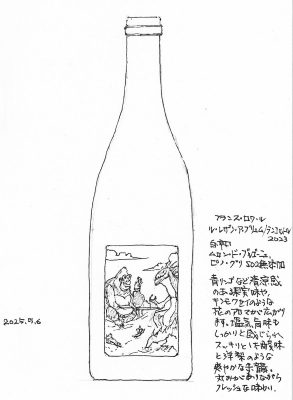 フランス・ロワール
ル・レザン・アブリュム/ランこルトル
2023
白辛口
ムロン・ド・ブルゴーニュ、
ピノ・グリ SO2無添加
青リンゴなど清涼感
のある果実味や、
キンモクセイのような
花のアロマが広がり
ます。塩気、旨味も
しっかりと感じられ
スッキリとした酸味
と洋梨のような
爽やかな余韻。
丸みがありながら
フレッシュな味わい。
2025.9.6